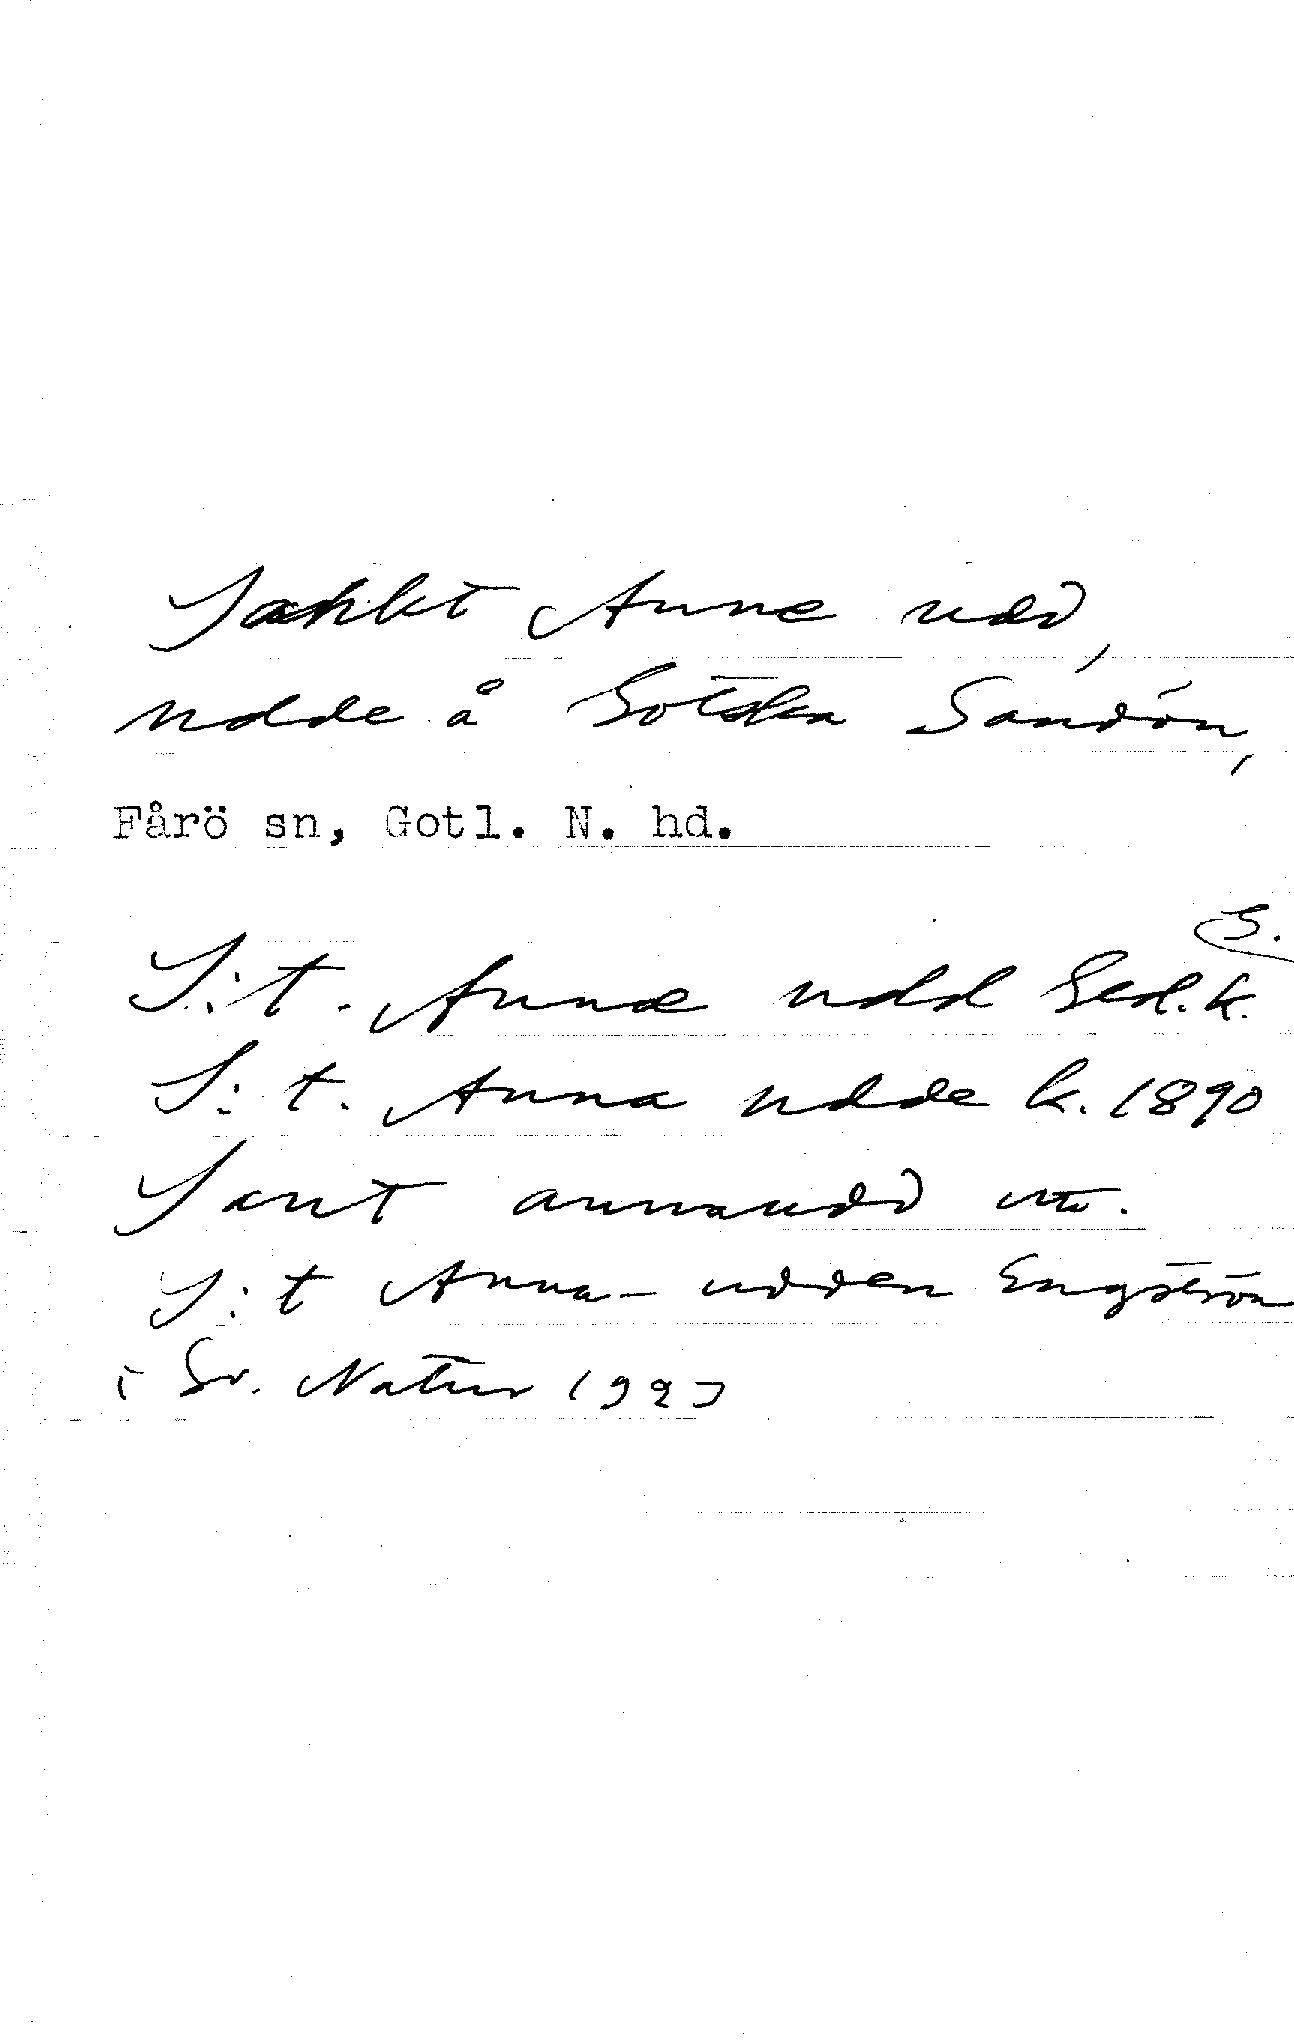 Sankt Annæ udd,
udde å Gotska Sandön,
Fårö sn, Gotl. N. hd.
G.
S:t. Annæ udd Ged.k.
S:t. Anna udde k. 1890
Sant annaudd
S:t Anna-udden Engström
i Sv. Natur 1927